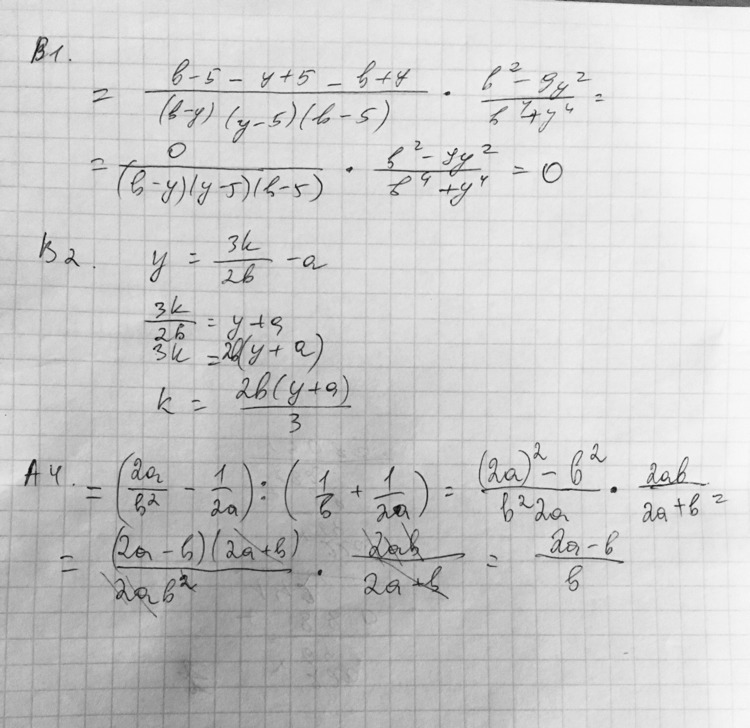 В1.
= \frac{b-5-y+5-b+y}{(b-y)(y-5)(b-5)} \cdot \frac{b^2-9y^2}{b^4+y^4} =
= \frac{0}{(b-y)(y-5)(b-5)} \cdot \frac{b^2-9y^2}{b^4+y^4} = 0
В2. y = \frac{3k}{2b} - a
\frac{3k}{2b} = y+a
3k = 2b(y+a)
k = \frac{2b(y+a)}{3}
А4. = (\frac{2a}{b^2} - \frac{1}{2a}) : (\frac{1}{b} + \frac{1}{2a}) = \frac{(2a)^2-b^2}{b^2 2a} \cdot \frac{2ab}{2a+b^2}
= \frac{(2a-b)(2a+b)}{2ab^2} \cdot \frac{2ab}{2a+b} = \frac{2a-b}{b}